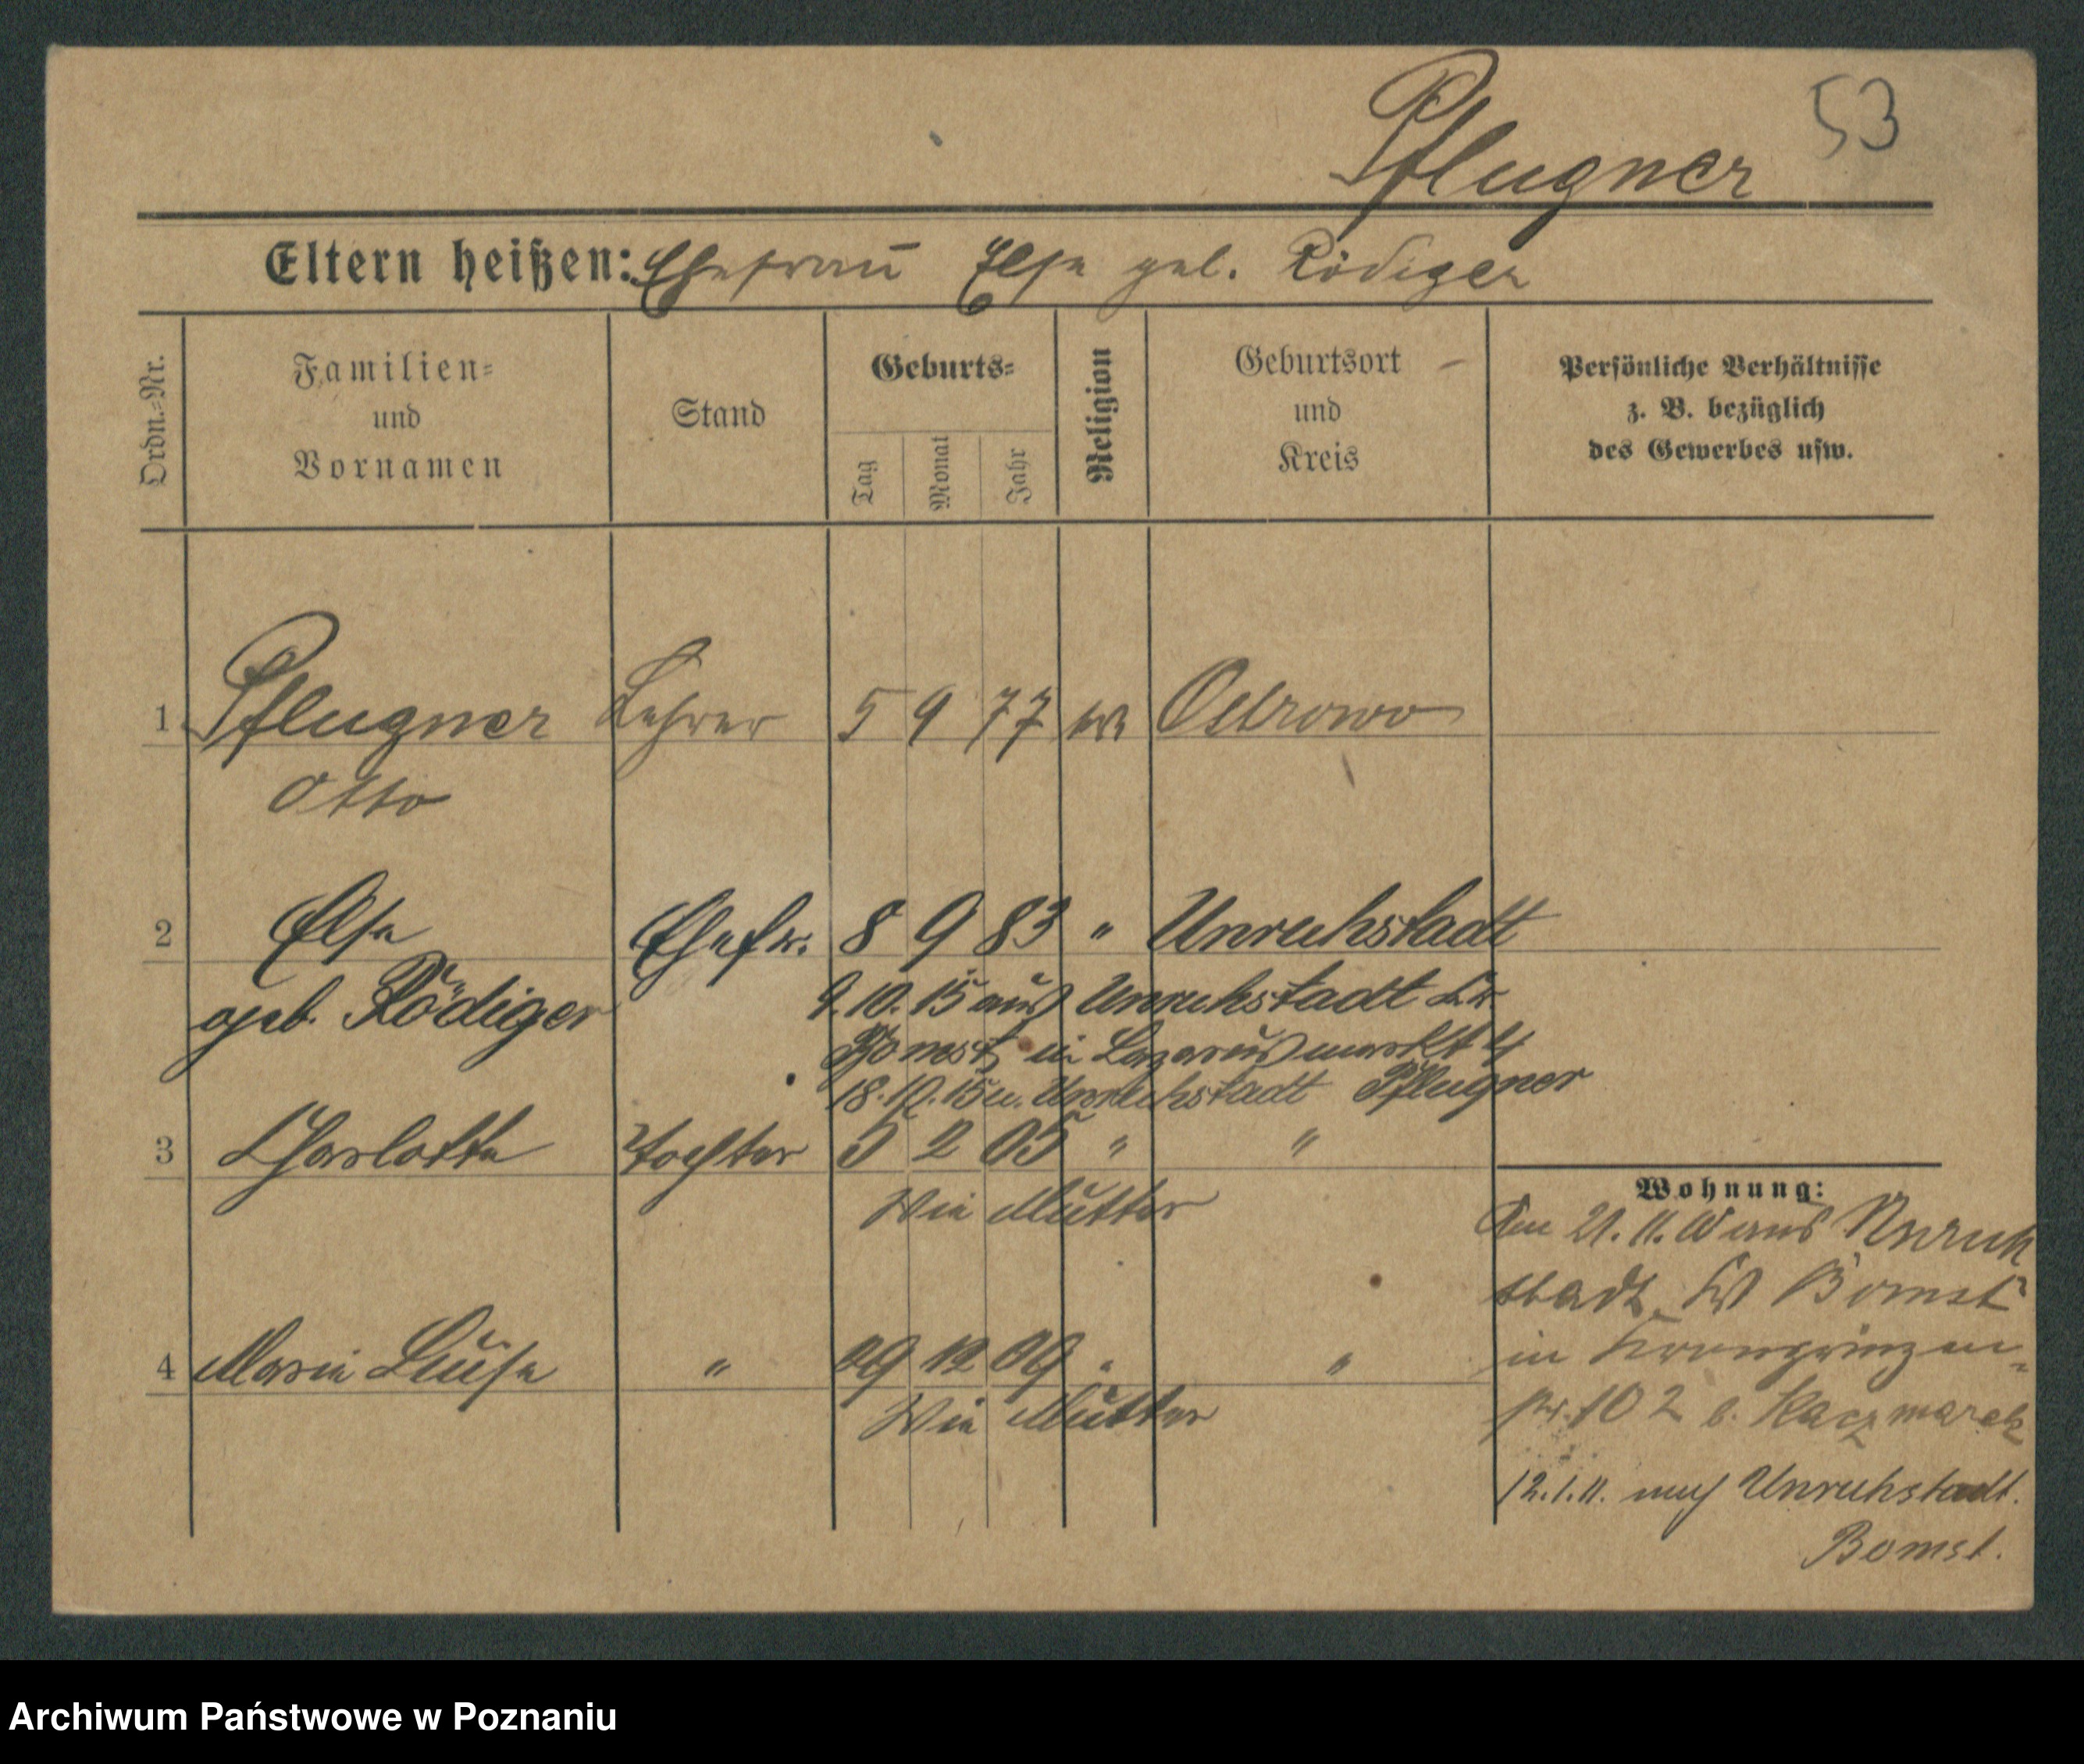 53
Pflugner
Eltern heißen: Ehefrau Else geb. Rödiger
Ordn.=Nr.
Familien=
und
Vornamen
Stand
Geburts=
Tag
Monat
Jahr
Religion
Geburtsort
und
Kreis
Persönliche Verhältnisse
z. B. bezüglich
des Gewerbes usw.
1 Pflugner Lehrer 5 9 77 ev Ostrowo
Otto
2 Else Ehefr. 8 9 83 " Unruhstadt
geb. Rödiger
9.10.15 aus Unruhstadt Kr.
Bomst, in Lazarusmarkt 4
18.10.15 n. Unruhstadt Pflugner
3 Charlotte Tochter 5 2 05 " "
Wie Mutter
4 Marie Luise " 09 12 09 " "
Wie Mutter
Wohnung:
Am 21.11.10 aus Unruh
stadt, Kr Bomst
in Kronprinzen=
str. 102 b. Kaczmarek
12.1.11. nach Unruhstadt.
Bomst.
Archiwum Państwowe w Poznaniu